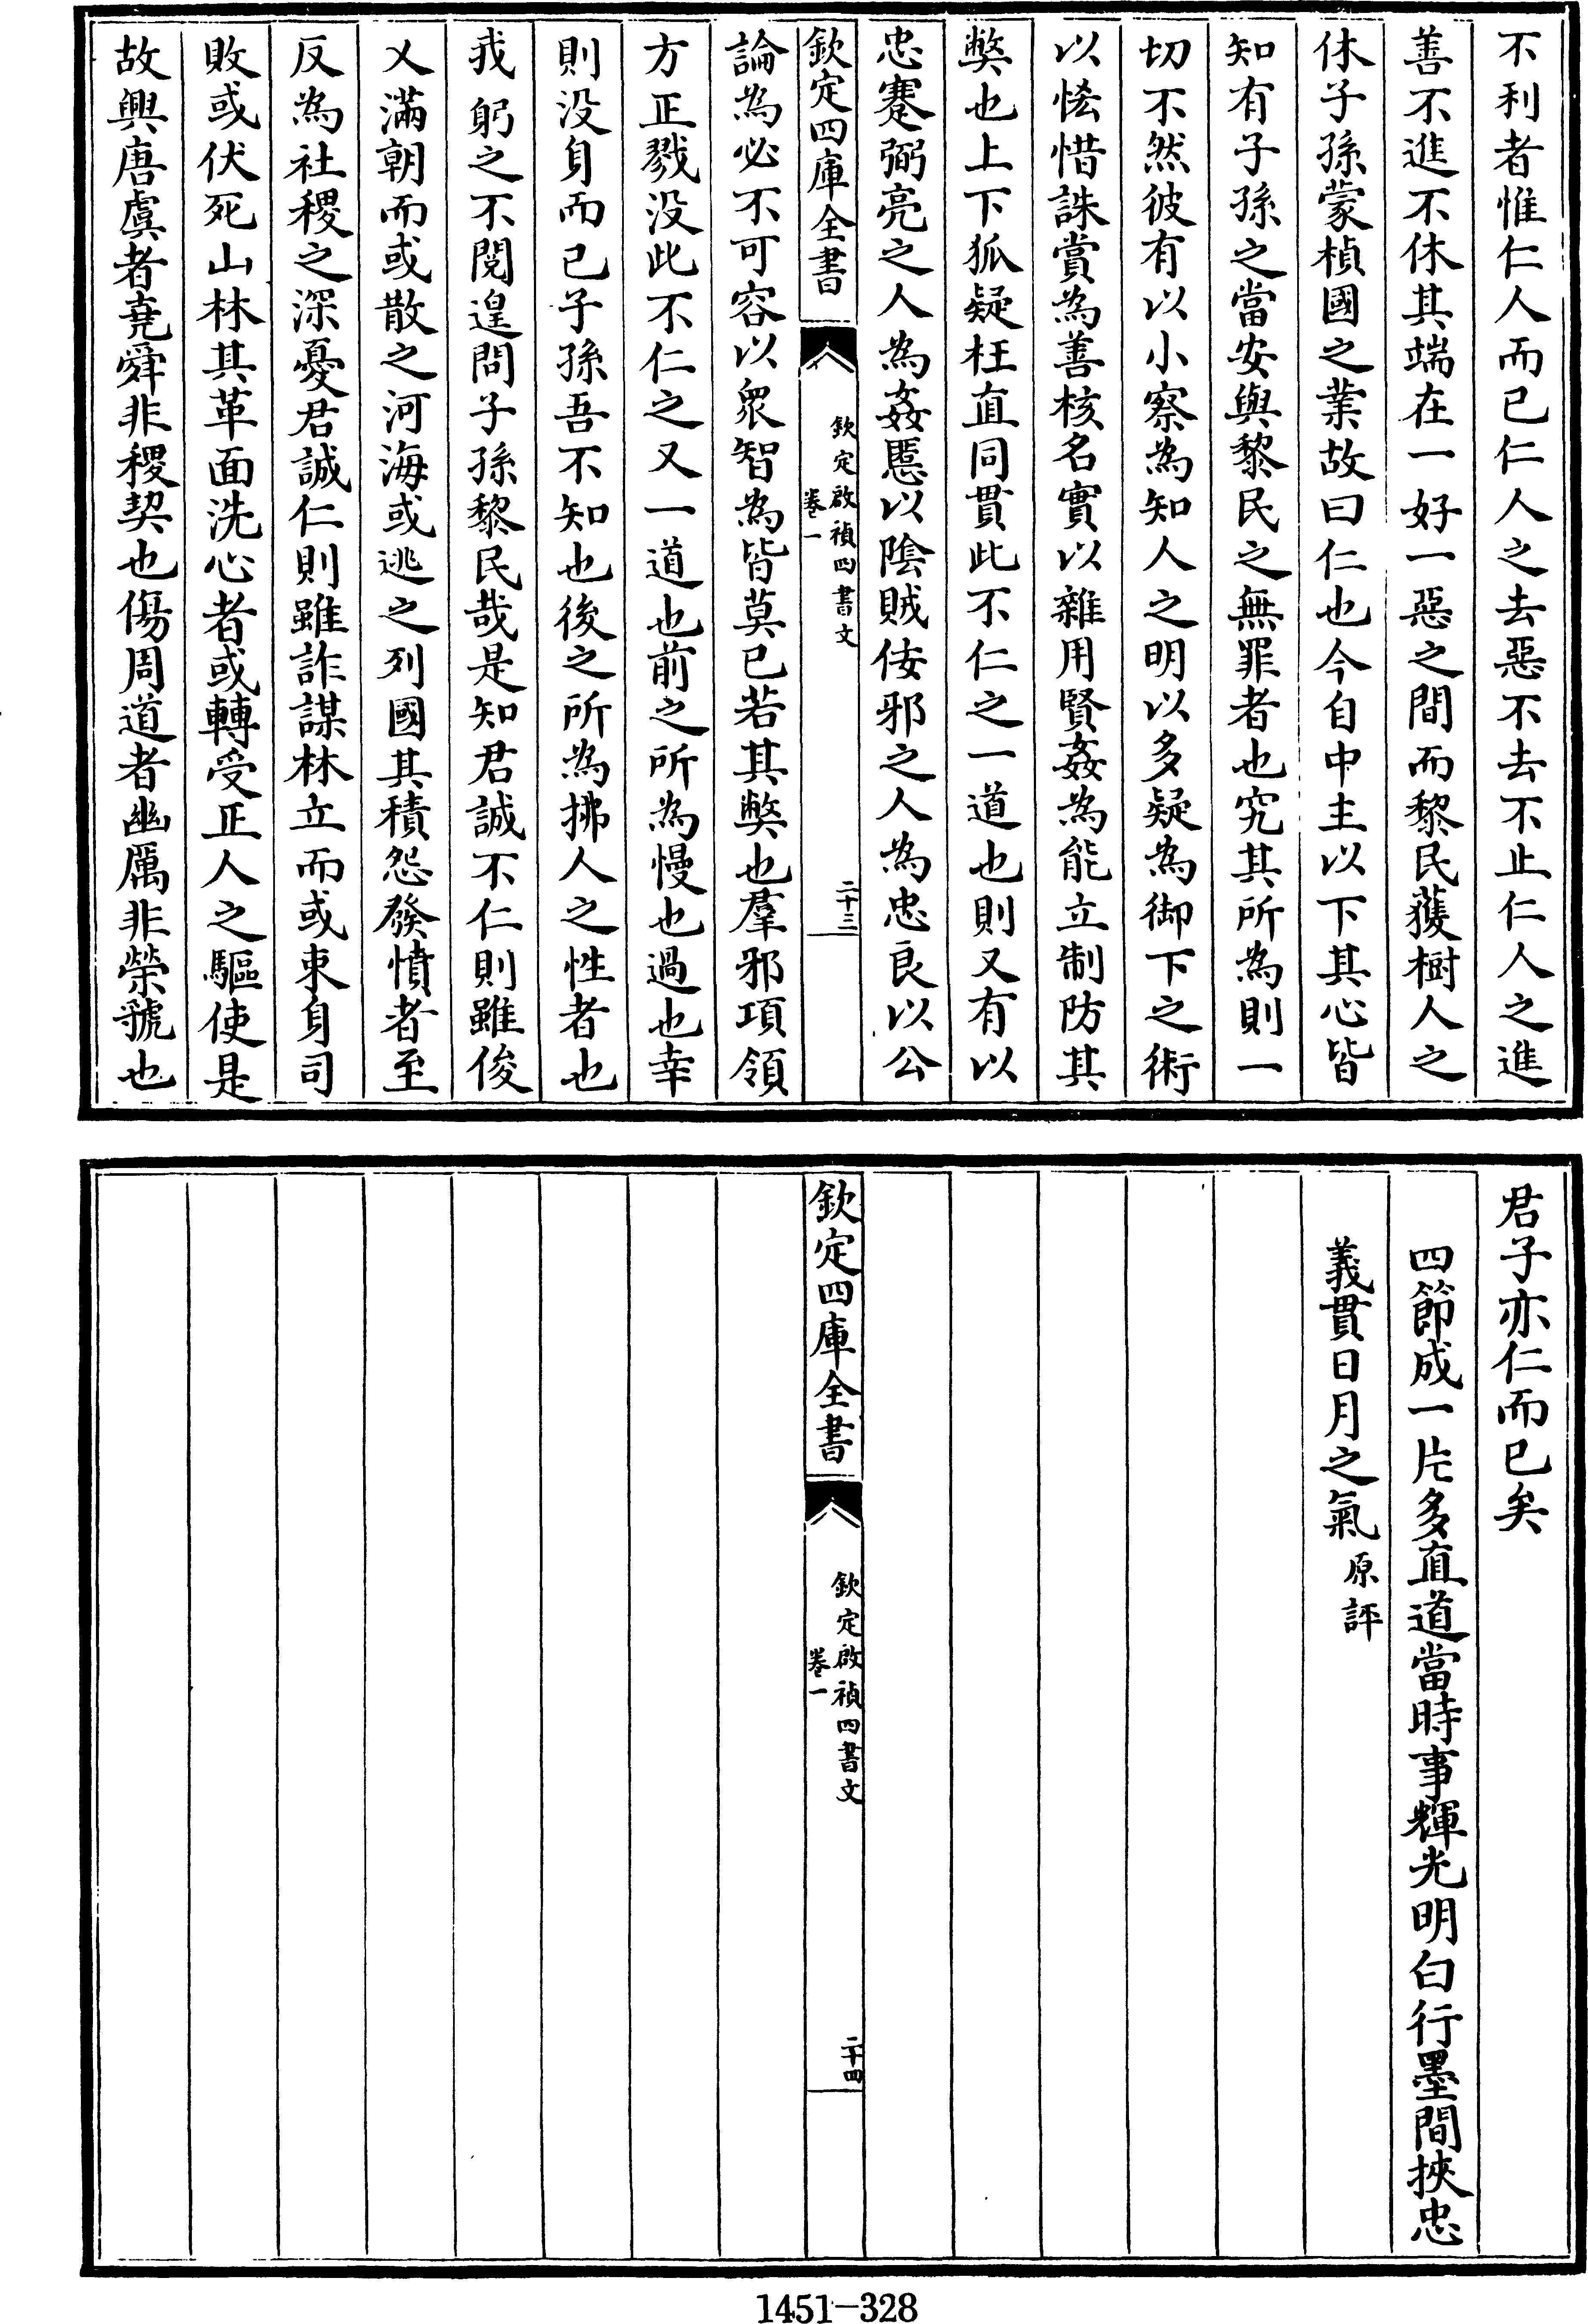 不利者惟仁人而已仁人之去惡不去不止仁人之進
善不進不休其端在一好一惡之間而黎民獲樹人之
休子孫蒙楨國之業故曰仁也今自中主以下其心皆
知有子孫之當安與黎民之無罪者也究其所為則一
切不然彼有以小察為知人之明以多疑為御下之術
以恡惜誅賞為善核名實以雜用賢姦為能立制防其
弊也上下狐疑枉直同貫此不仁之一道也則又有以
忠蹇弼亮之人為姦慝以陰賊佞邪之人為忠良以公
欽定四庫全書
欽定啟禎四書文
卷一
二十三
論為必不可容以衆智為皆莫已若其弊也羣邪項領
方正戮没此不仁之又一道也前之所為慢也過也幸
則没身而已子孫吾不知也後之所為拂人之性者也
我躬之不閱遑問子孫黎民哉是知君誠不仁則雖俊
乂滿朝而或散之河海或逃之列國其積怨發憤者至
反為社稷之深憂君誠仁則雖詐謀林立而或束身司
敗或伏死山林其革面洗心者或轉受正人之驅使是
故興唐虞者堯舜非稷契也傷周道者幽厲非榮虢也
君子亦仁而已矣
四節成一片多直道當時事輝光明白行墨間挾忠
義貫日月之氣原評
欽定四庫全書
欽定啟禎四書文
卷一
二十四
1451-328